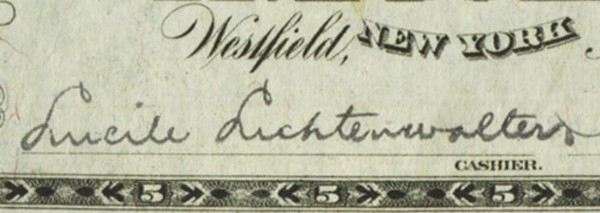 Westfield, NEW YORK
Lucile Lichtenwalter
CASHIER.
5 5 5